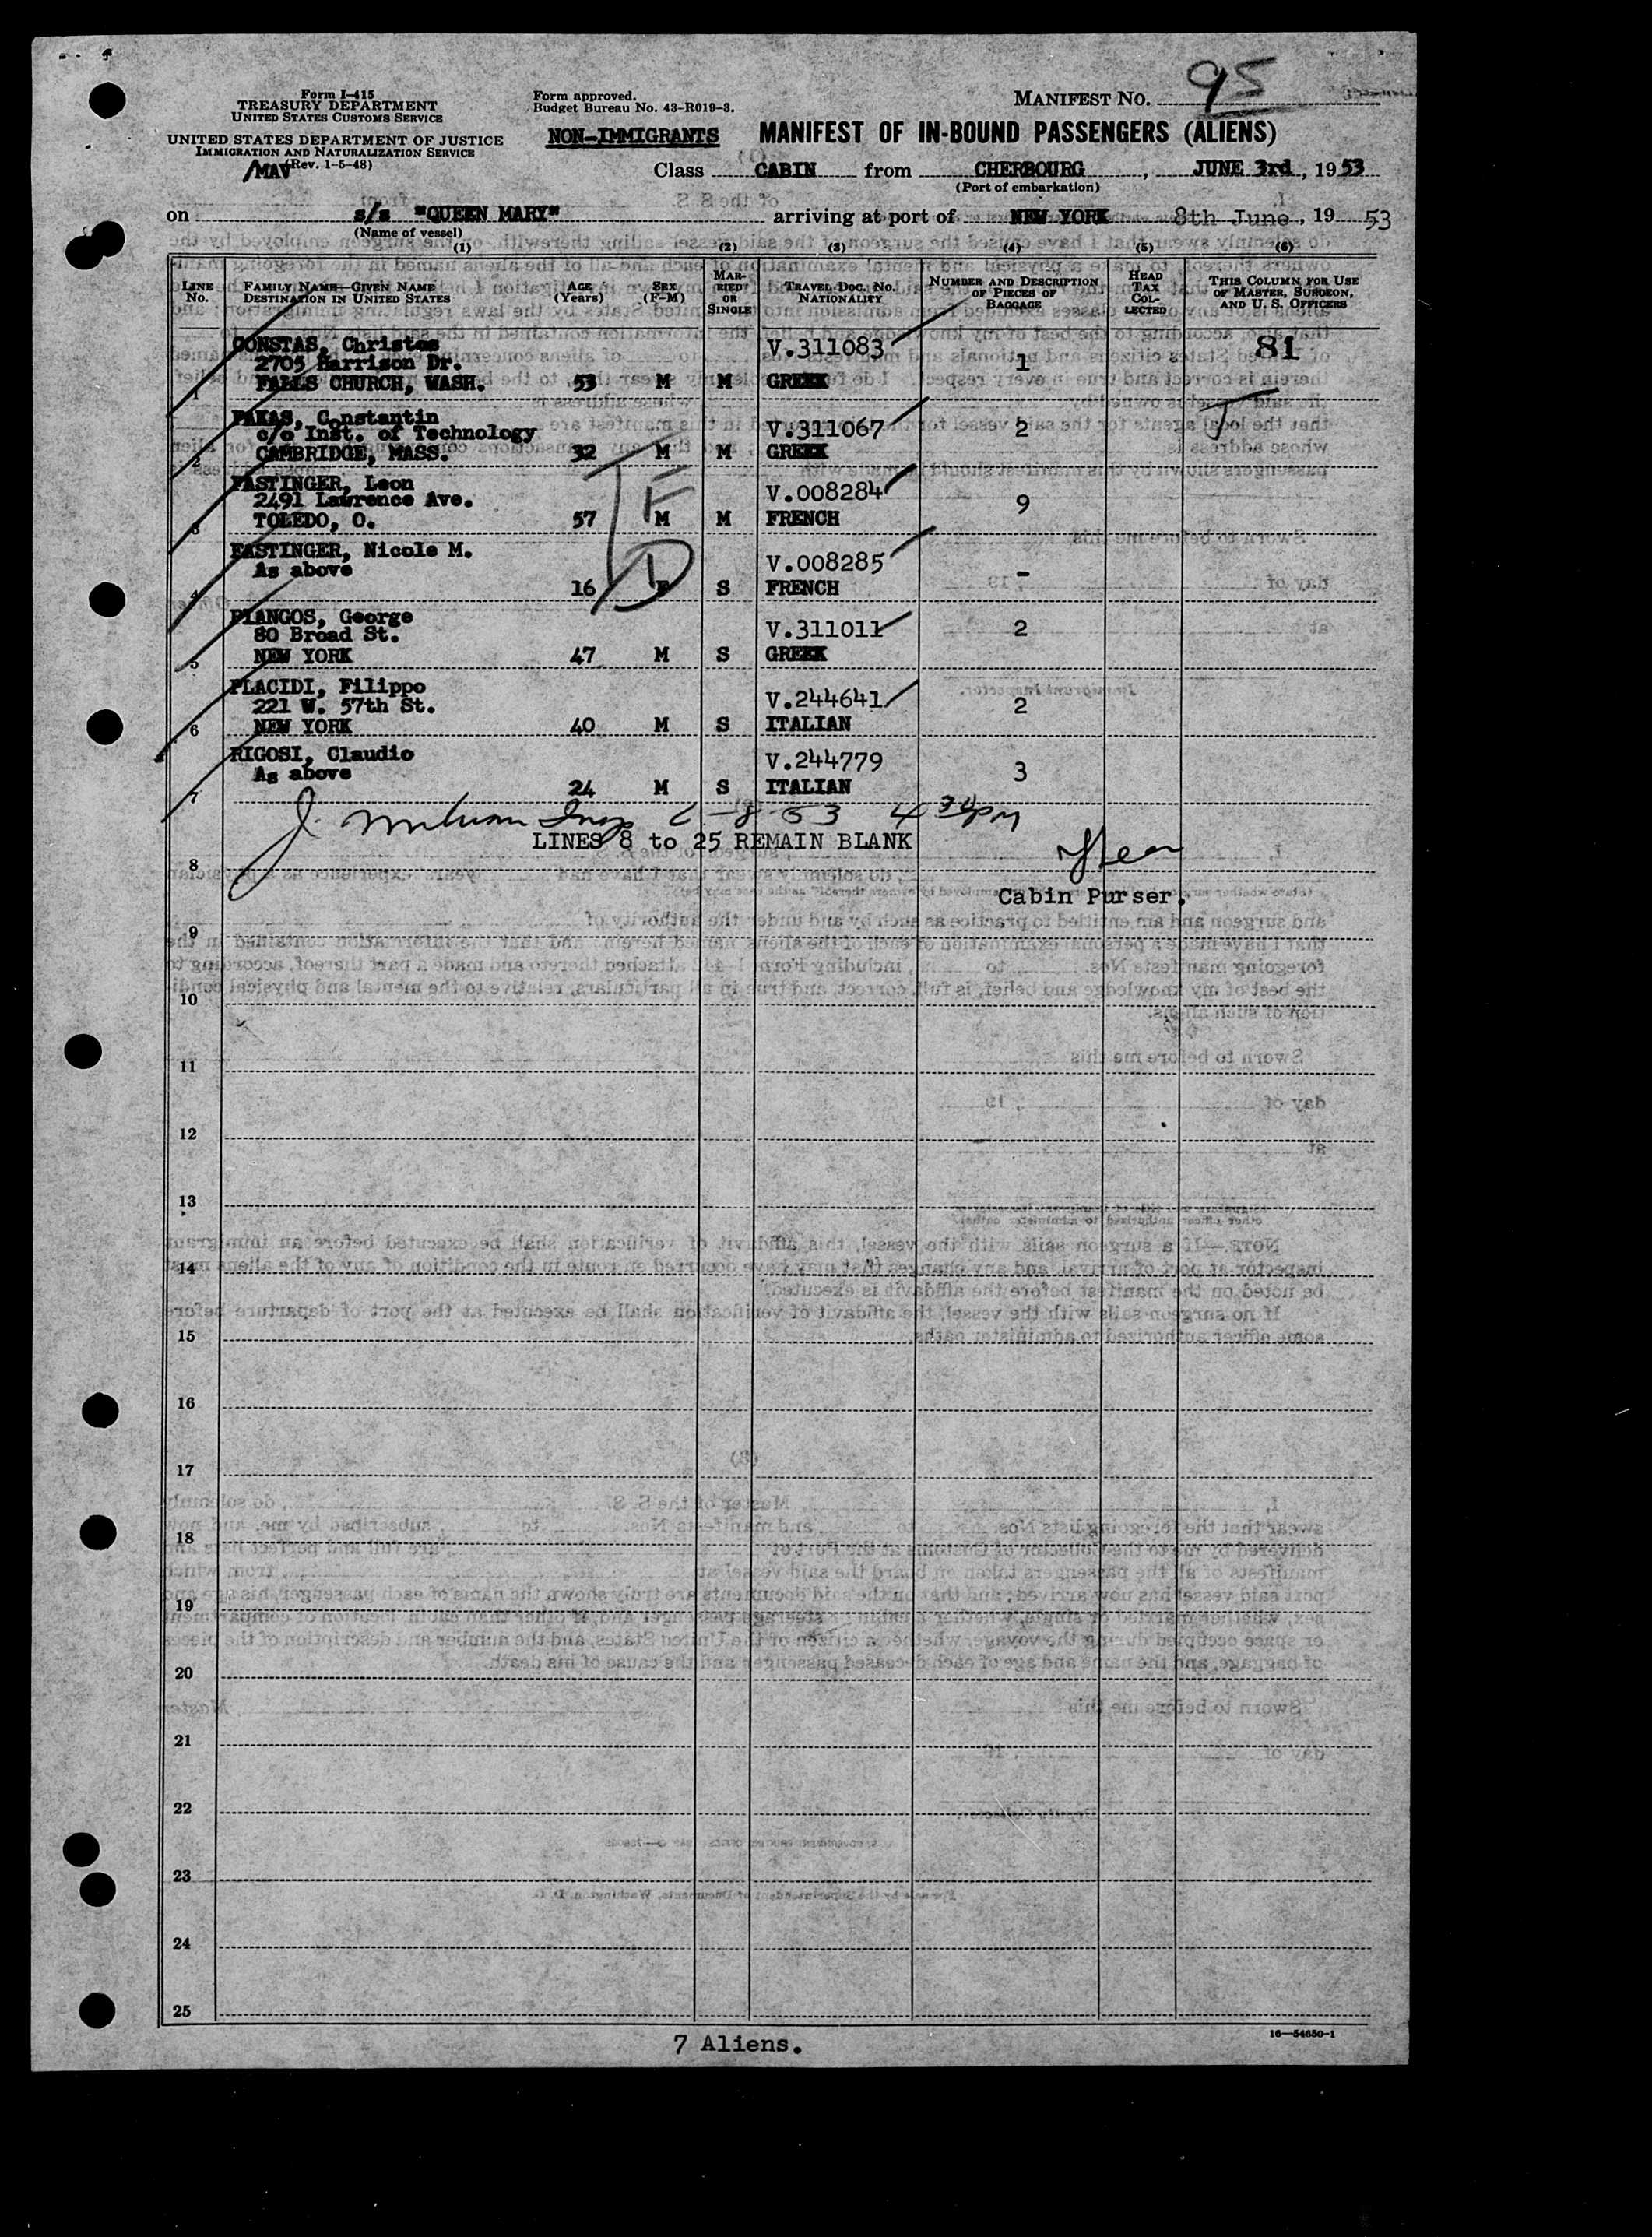 Form I-415
TREASURY DEPARTMENT
UNITED STATES CUSTOMS SERVICE
UNITED STATES DEPARTMENT OF JUSTICE
IMMIGRATION AND NATURALIZATION SERVICE
(Rev. 1-5-48)
/MAV
Form approved.
Budget Bureau No. 43-R019-3.
MANIFEST NO. 95
NON-IMMIGRANTS MANIFEST OF IN-BOUND PASSENGERS (ALIENS)
Class CABIN from CHERBOURG, JUNE 3rd, 1953
(Port of embarkation)
on s/s "QUEEN MARY" arriving at port of NEW YORK 8th June, 19 53
(Name of vessel)
(1) (2) (3) (4) (5) (6)
LINE No. FAMILY NAME—GIVEN NAME DESTINATION IN UNITED STATES AGE (Years) SEX (F-M) MARRIED OR SINGLE TRAVEL DOC. NO. NATIONALITY NUMBER AND DESCRIPTION OF PIECES OF BAGGAGE HEAD TAX COLLECTED THIS COLUMN FOR USE OF MASTER, SURGEON, AND U. S. OFFICERS
CONSTAS, Christos V.311083 81
2705 Harrison Dr. 1
1 FALLS CHURCH, WASH. 53 M M GREEK
PAKAS, Constantin
c/o Inst. of Technology V.311067 2
2 CAMBRIDGE, MASS. 32 M M GREEK
FASTINGER, Leon V.008284
2491 Lawrence Ave. 9
3 TOLEDO, O. 57 M M FRENCH
FASTINGER, Nicole M. V.008285
As above -
4 16 F S FRENCH
PIANGOS, George V.311011 2
80 Broad St.
5 NEW YORK 47 M S GREEK
PLACIDI, Filippo V.244641
221 W. 57th St. 2
6 NEW YORK 40 M S ITALIAN
RIGOSI, Claudio V.244779
As above 3
7 24 M S ITALIAN
6-8-53 4 30 PM
LINES 8 to 25 REMAIN BLANK
8
Cabin Purser.
9
10
11
12
13
14
15
16
17
18
19
20
21
22
23
24
25
16—54650-1
7 Aliens.